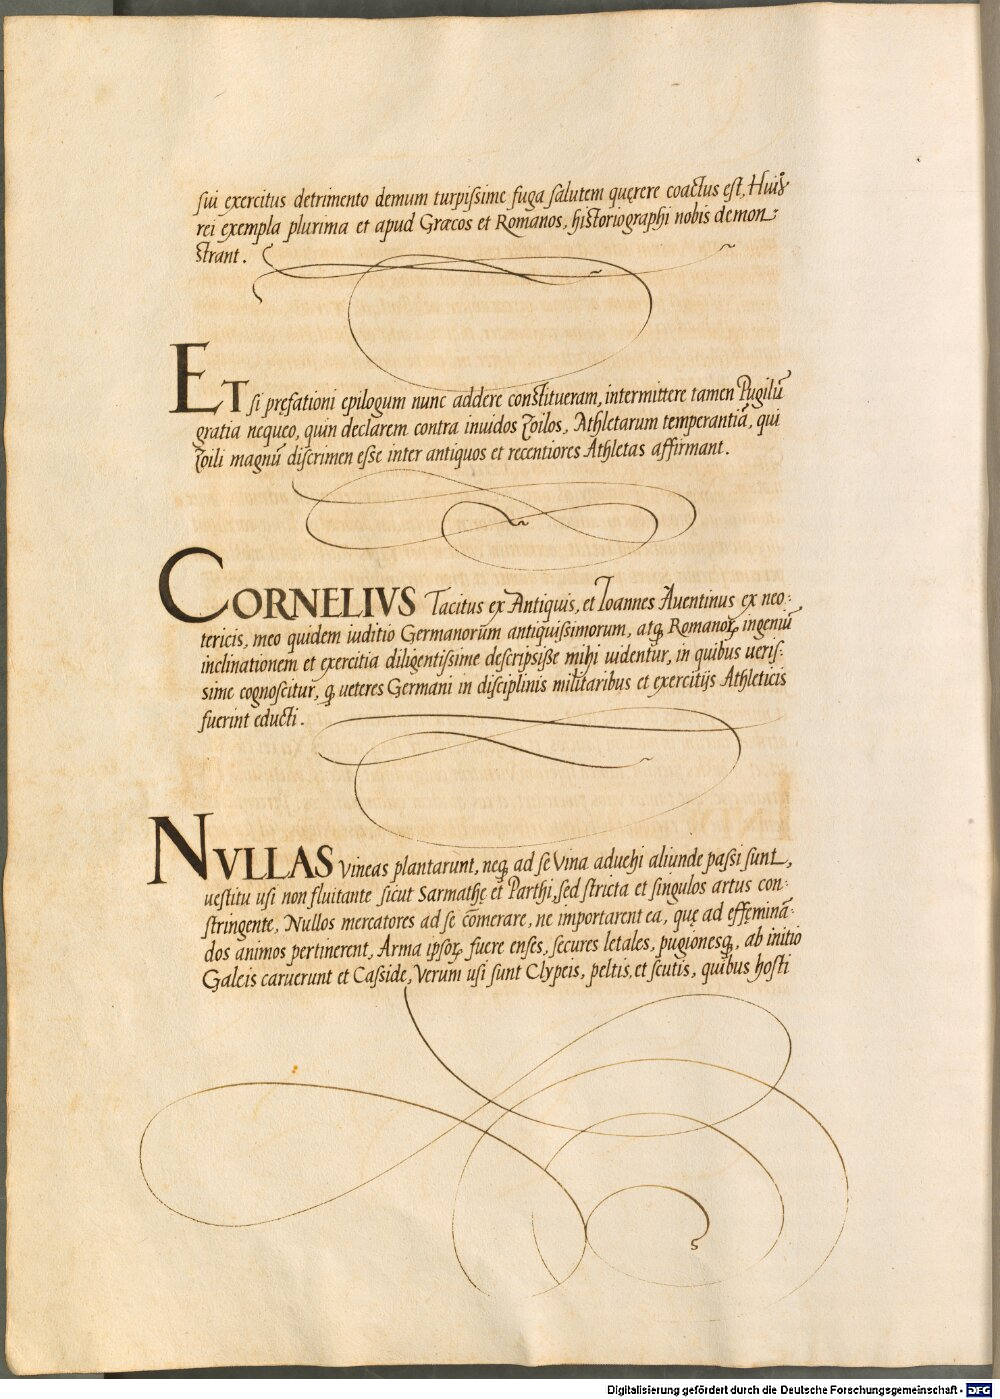 sui exercitus detrimento demum turpissime fuga salutem quęrere coactus est, Huiꝰ
rei exempla plurima et apud Græcos et Romanos, historiographi nobis demon-
strant.
ET si pręfationi epilogum nunc addere constitueram, intermittere tamen Pugilū
gratia nequeo, quin declarem contra inuidos Zoilos, Athletarum temperantiā, qui
Zoili magnū discrimen esse inter antiquos et recentiores Athletas affirmant.
CORNELIVS Tacitus ex Antiquis, et Ioannes Auentinus ex neo-
tericis, meo quidem iuditio Germanorum antiquissimorum, atq; Romanoꝝ ingeniū
inclinationem et exercitia diligentissime descripsisse mihi uidentur, in quibus ueris-
sime cognoscitur, ꝙ ueteres Germani in disciplinis militaribus et exercitijs Athleticis
fuerint educti.
NVLLAS vineas plantarunt, neq; ad se Vina aduehi aliunde passi sunt,
uestitu usi non fluitante sicut Sarmathę et Parthi, sed stricta et singulos artus con-
stringente, Nullos mercatores ad se cōmerare, ne importarent ea, quę ad effęminā-
dos animos pertinerent, Arma ipsoꝝ fuere enses, secures letales, pugionesq;, ab initio
Galeis caruerunt et Casside, Verum usi sunt Clypeis, peltis, et scutis, quibus hosti
Digitalisierung gefördert durch die Deutsche Forschungsgemeinschaft - DFG